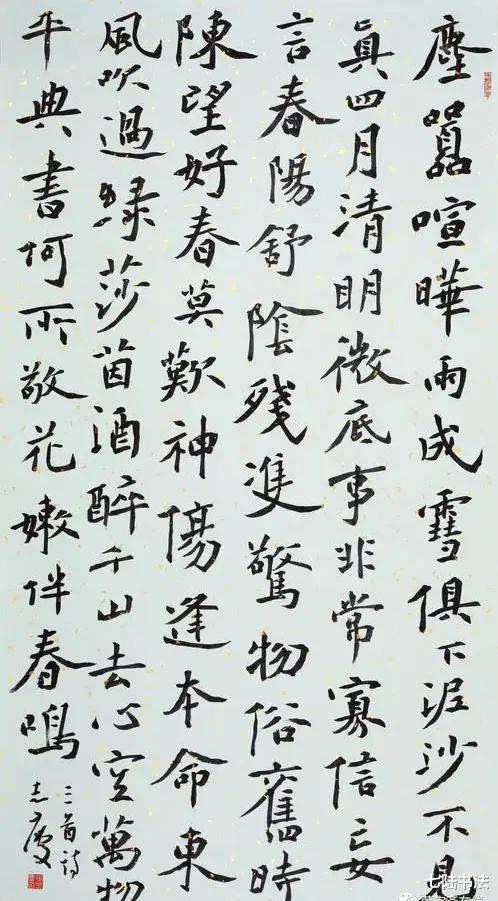 塵囂喧曄雨成雪俱下泥沙不見
眞四月清明微底事非常寡信妄
言春陽舒陰殘驚物俗舊時
陳望好春莫歎神傷逢本命東
風吹過綠莎茵酒醉千山去心空萬物
平典書何所敬花嫩伴春鳴
三首詩
志慶
七陆书法